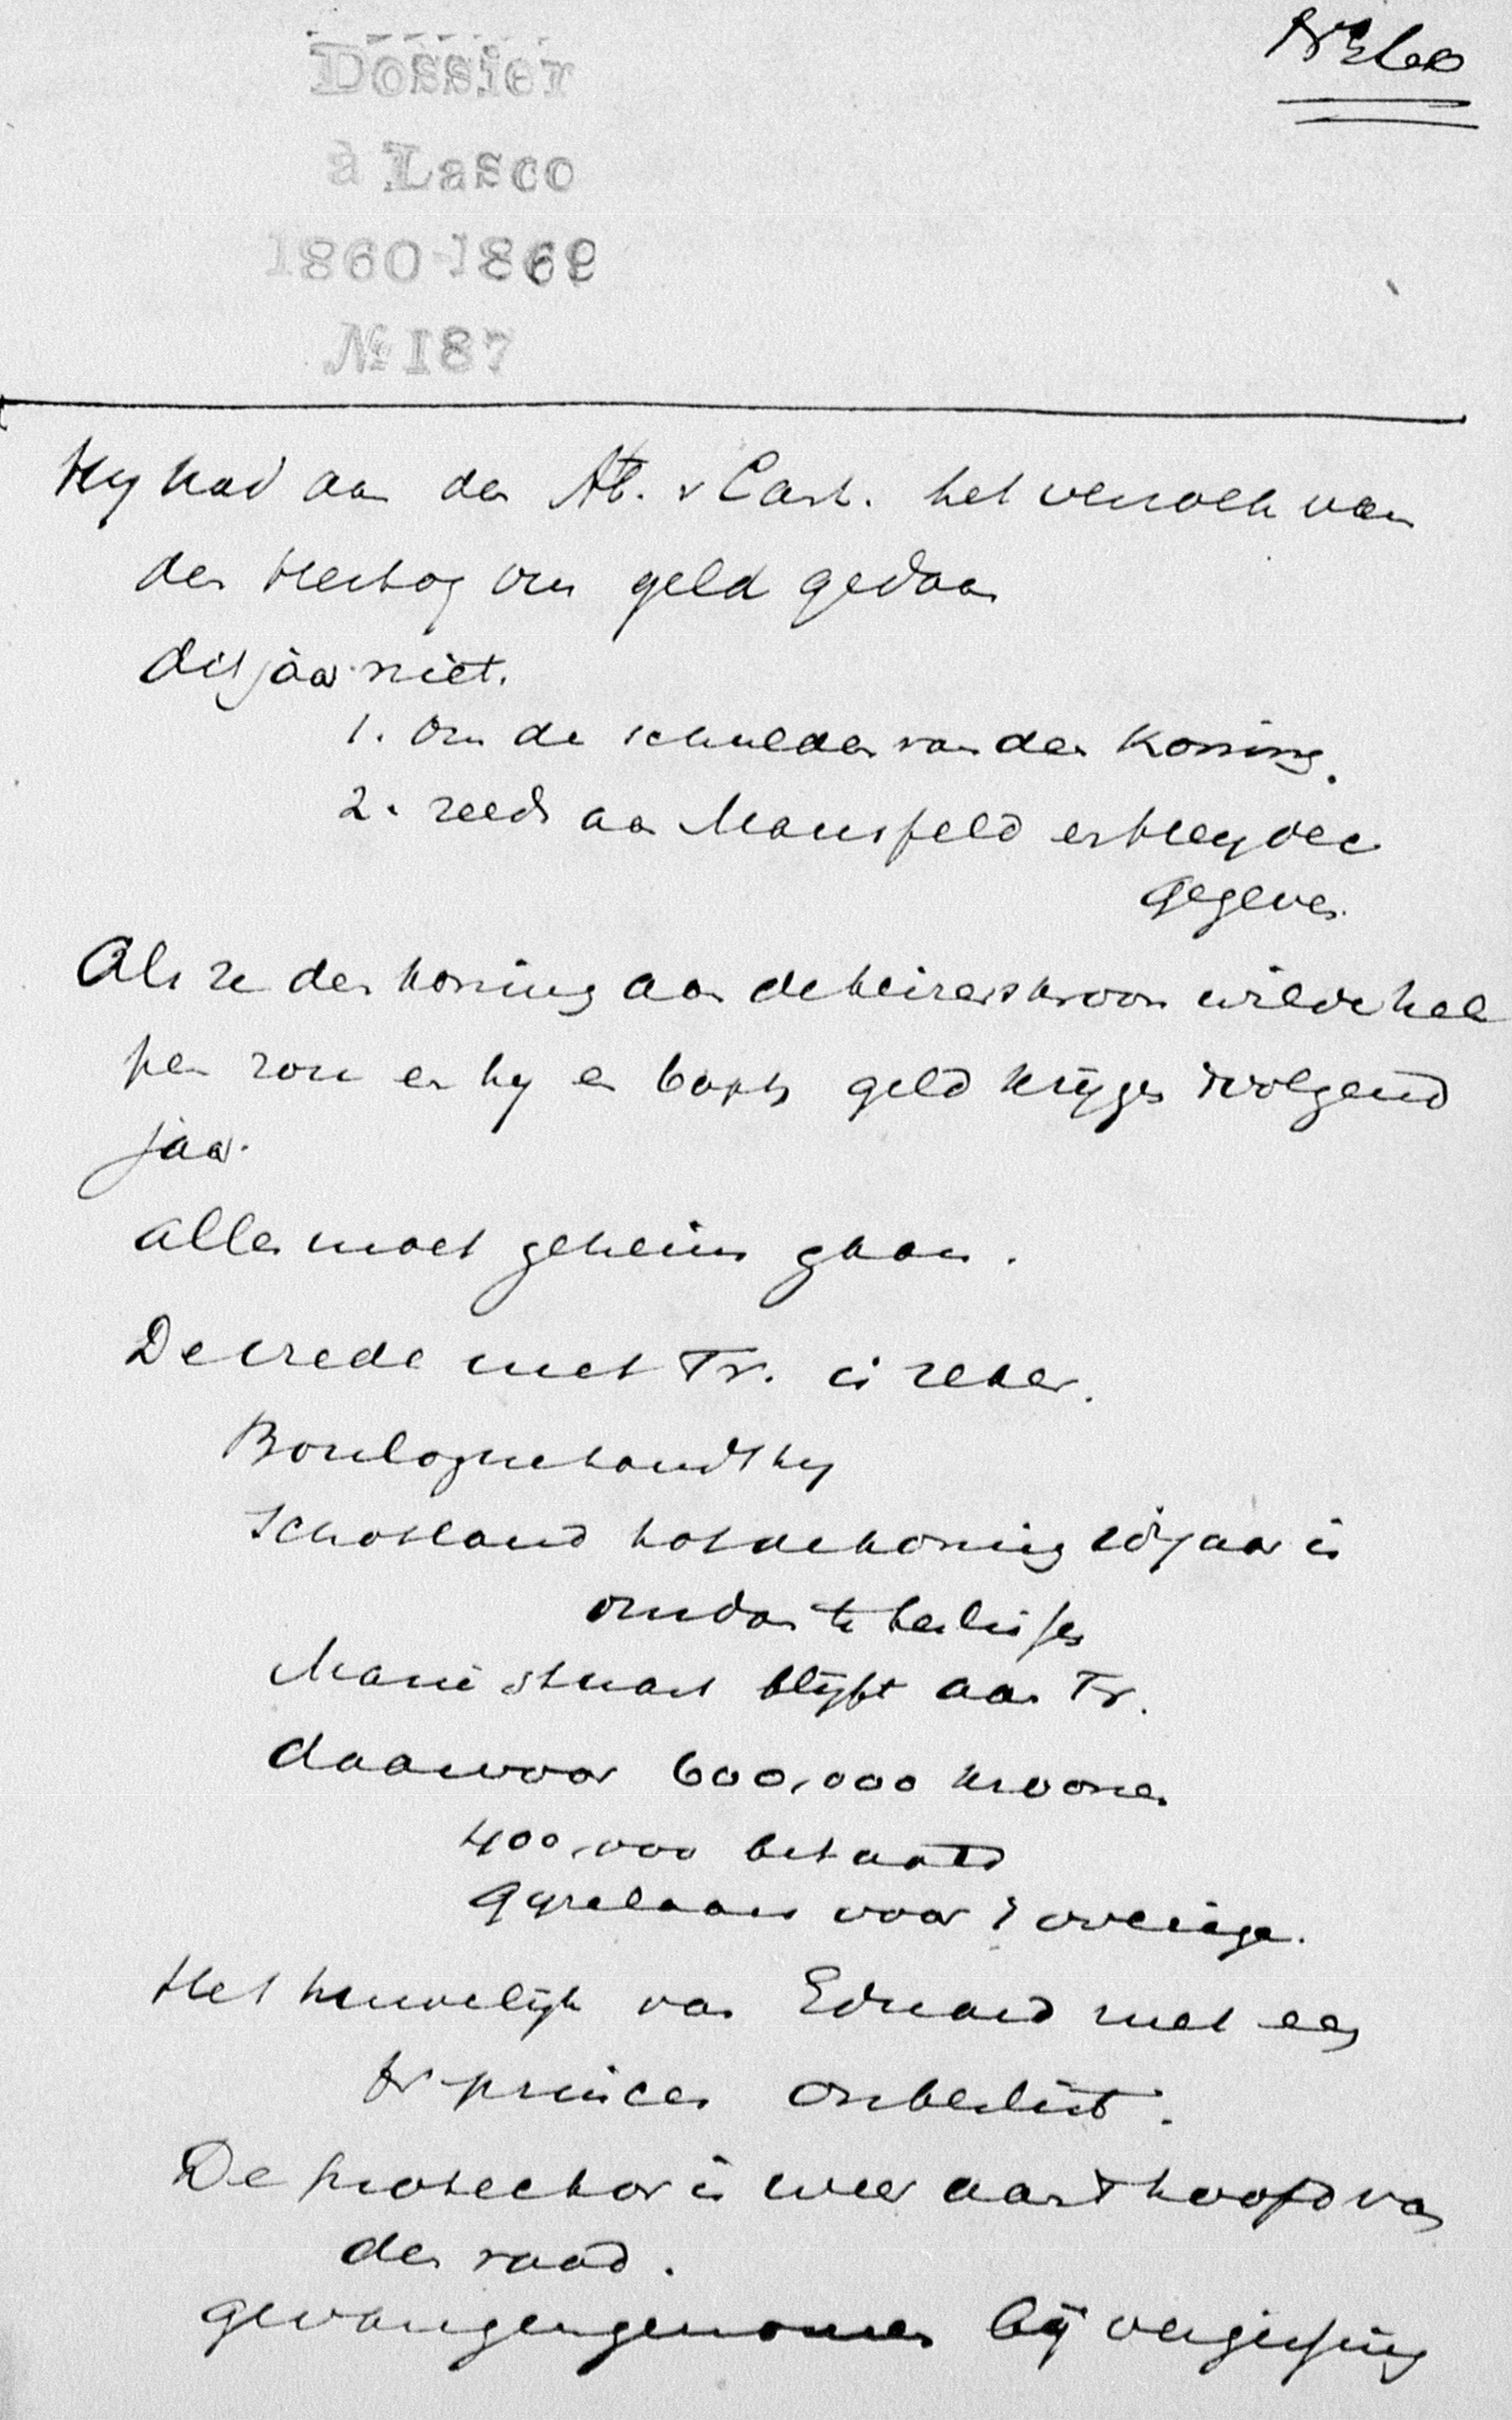 Nº 260
Dossier
à Lasco
1860-1869
№ 187
Hy had aan den Ab. v Cant. het verzoek van
den Hertog om geld gedaan
dit jaar niet.
1. Om de schulden van den Koning.
2. reeds aan Mansfeld en Heydec
gegeven.
Als ze den koning aan de keizerskroon wilde hel
pen zou en hy en bonds geld krijgen volgend
jaar.
alles moet geheim gaan.
De vrede met Fr. is zeker.
Boulogne houdt hy
Schotland hat de koning vijaar is
om dan te beslissen
Marie Stuart blijft aan Fr.
daarvoor 600,000 kroonen
400,000 betaald
Gyzelaars voor 't overige.
Het huwelijk van Eduard met een
fr princes onbeslist.
De protector is weer aan 't hoofd van
den raad.
gevangengenomen bij vergissing